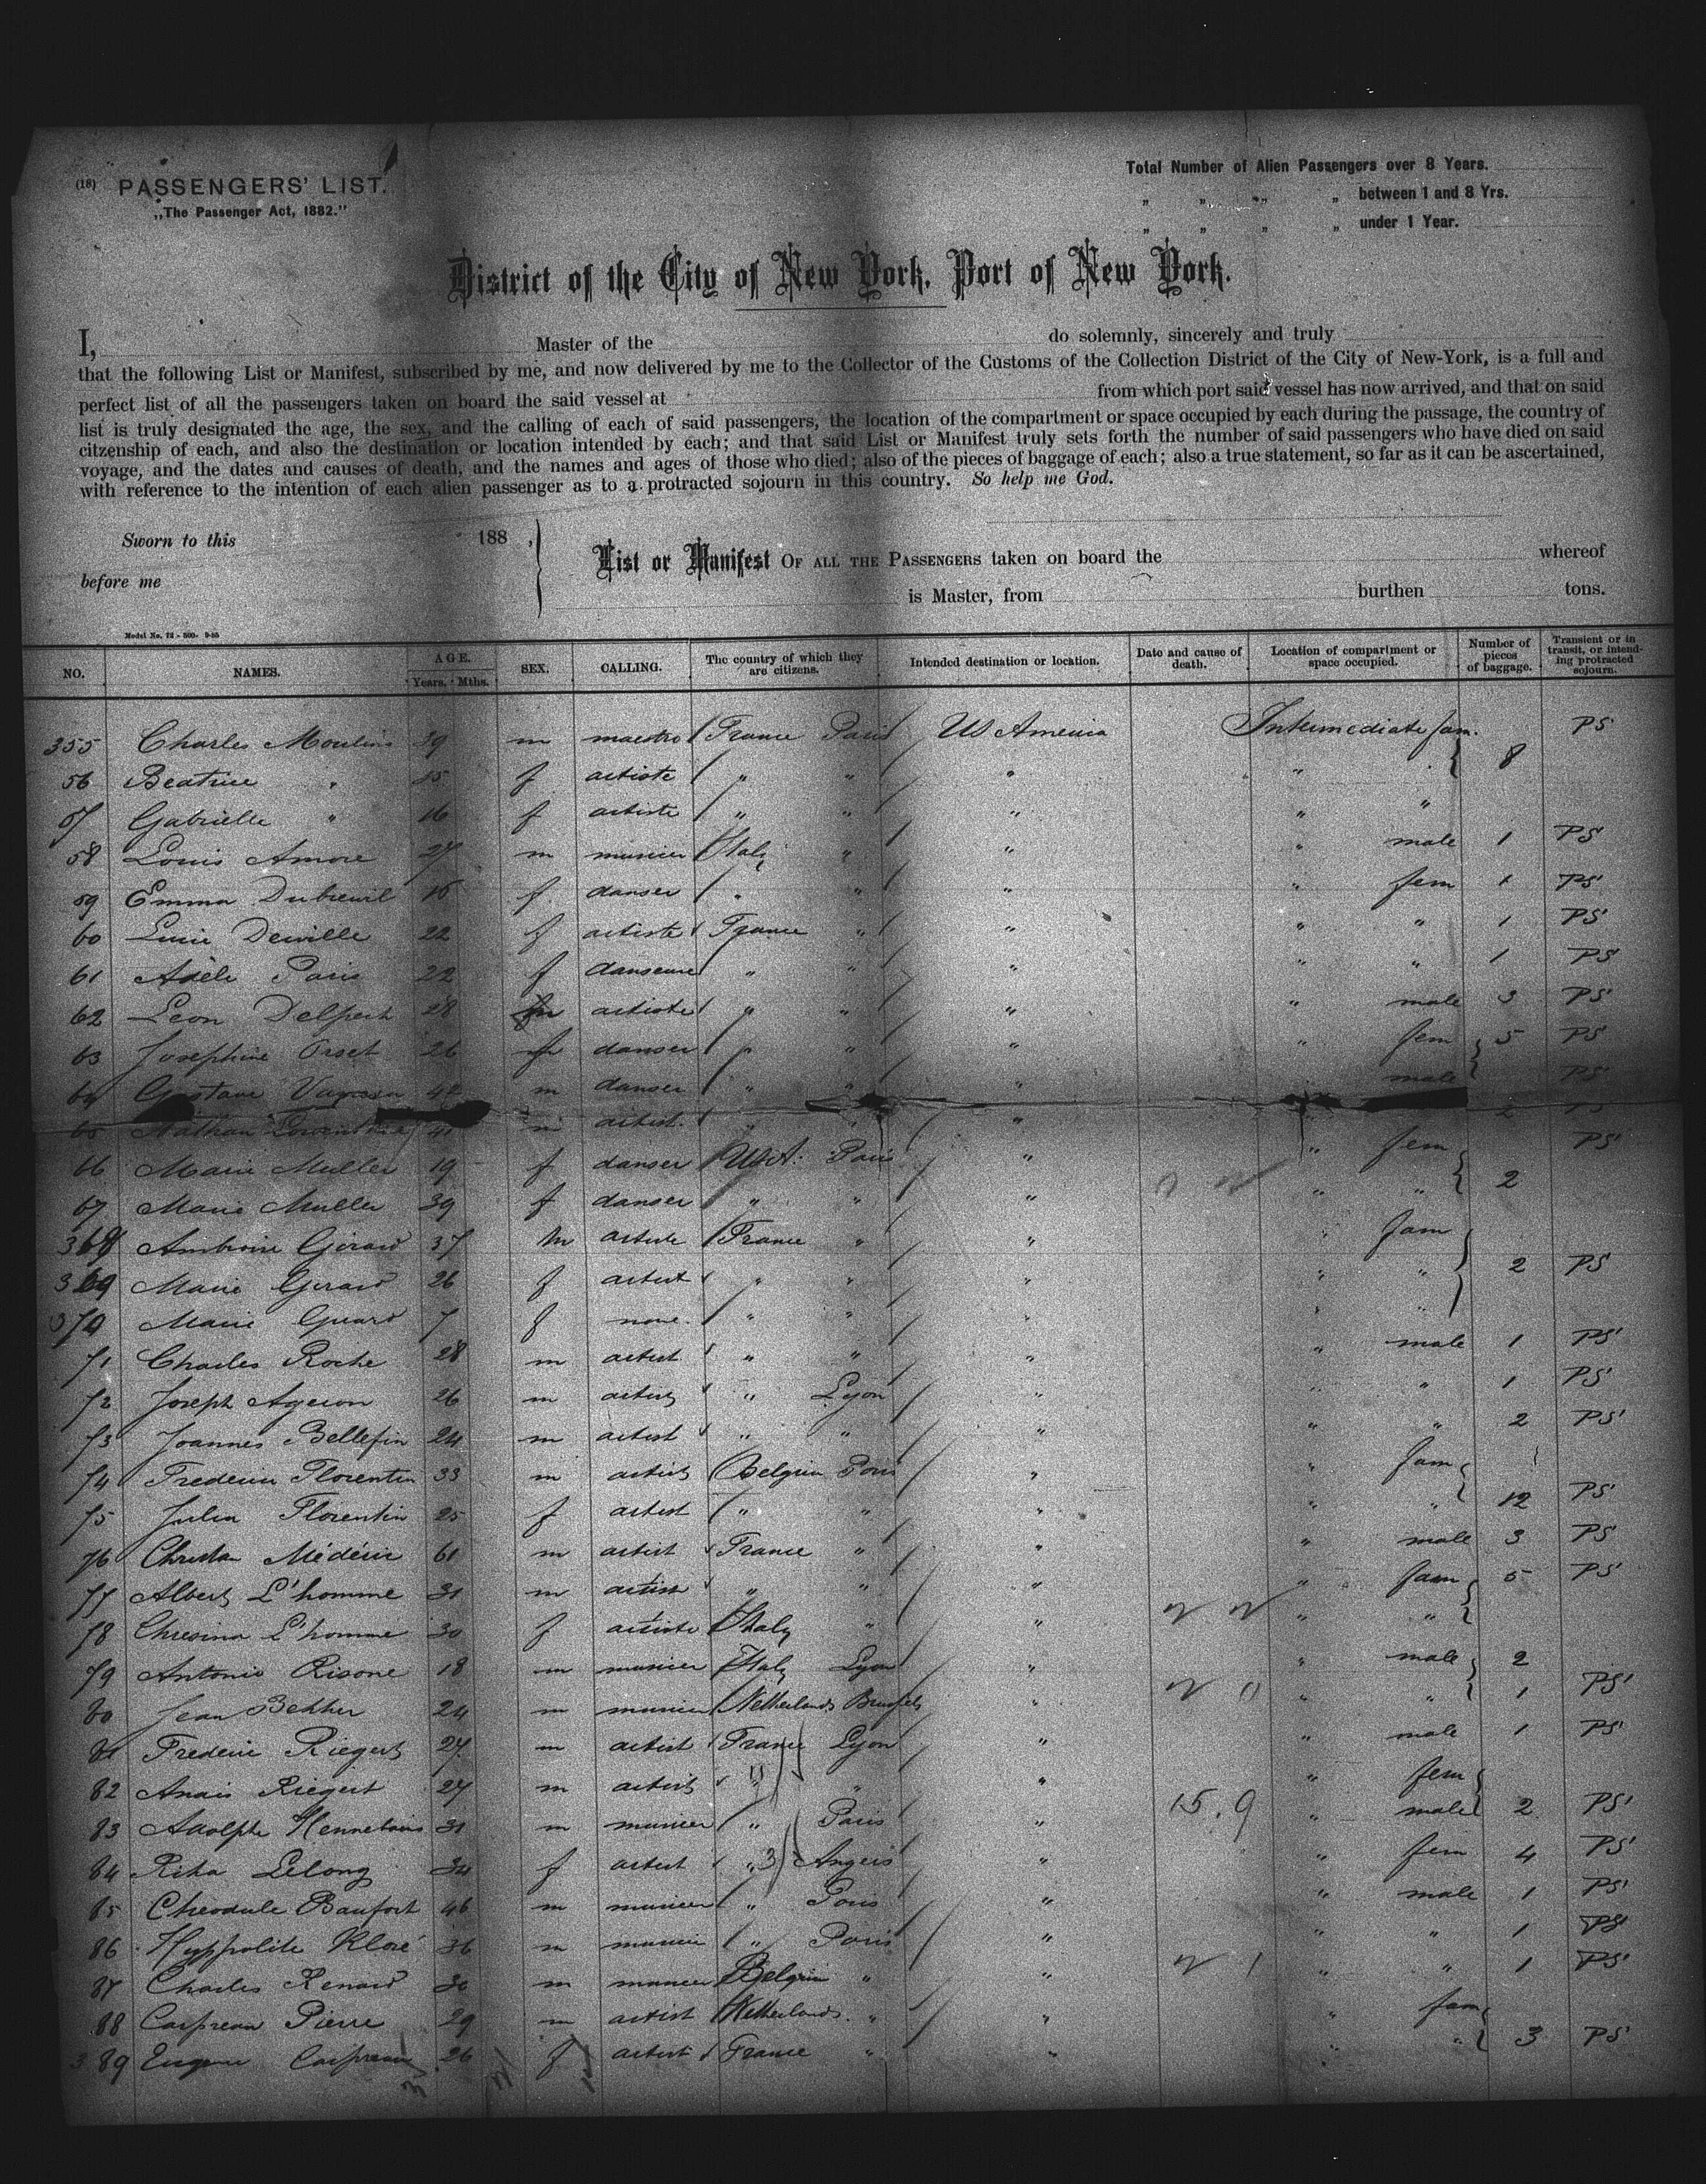 (18) PASSENGERS' LIST.
„The Passenger Act, 1882."
Total Number of Alien Passengers over 8 Years.
" " " " between 1 and 8 Yrs.
" " " " under 1 Year.
District of the City of New York, Port of New York.
I, Master of the do solemnly, sincerely and truly
that the following List or Manifest, subscribed by me, and now delivered by me to the Collector of the Customs of the Collection District of the City of New-York, is a full and
perfect list of all the passengers taken on board the said vessel at from which port said vessel has now arrived, and that on said
list is truly designated the age, the sex, and the calling of each of said passengers, the location of the compartment or space occupied by each during the passage, the country of
citzenship of each, and also the destination or location intended by each; and that said List or Manifest truly sets forth the number of said passengers who have died on said
voyage, and the dates and causes of death, and the names and ages of those who died; also of the pieces of baggage of each; also a true statement, so far as it can be ascertained,
with reference to the intention of each alien passenger as to a protracted sojourn in this country. So help me God.
Sworn to this 188 ,
before me
List or Manifest OF ALL THE PASSENGERS taken on board the whereof
is Master, from burthen tons.
Model No. 12 - 500- 9-85
NO. NAMES. AGE. Years. Mths. SEX. CALLING. The country of which they are citizens. Intended destination or location. Date and cause of death. Location of compartment or space occupied. Number of pieces of baggage. Transient or in transit, or intending protracted sojourn.
355 Charles Moulins 39 m maestro France Paris US America Intermediate fam. PS
56 Beatrice " f artiste " " " " 8
57 Gabrielle " 16 f artiste " " " " "
58 Louis Amore 27 m musicer Italy " " " male 1 PS
59 Emma Dubreuil f danser " " " " fem 1 PS
60 Lucie Deville 22 f artiste France " " " " 1 PS
61 Adèle Paris 22 f danseuse " " " " " 1 PS
62 Leon Delpech 28 m artiste " " " " male 3 PS
63 Josephine Orset 26 f danser " " " " fem 5 PS
64 Gustave 42 m danser " " " male PS
65 Nathan 41 m artist. " " " 2 PS
66 Marie Muller 19 f danser USA. Paris " " fem PS
67 Marie Muller 39 f danser " " " " " 2
368 Ambroise Gérard 37 m artiste France " " " fam
369 Marie Gerard 26 f artist " " " " " 2 PS
370 Marie Gerard 7 f none. " " " " "
71 Charles Roche 28 m artist " " " " male 1 PS
72 Joseph Ageron 26 m artist " Lyon " " " 1 PS
73 Joannes Bellefin 24 m artist " " " " " 2 PS
74 Frederic Florentin 33 m artist Belgium Paris " " fam
75 Julia Florentin 25 f artist " " " " " 12 PS
76 Médéric 61 m artist France " " " male 3 PS
77 Albert L'homme 31 m artist " " " " fam 5 PS
78 L'homme 30 f artiste Italy " " " "
79 Antonio Risone 18 m musicer Italy Lyon " " male 2
80 Jean Bekker 24 m musicer Netherlands Brussels " " " 1 PS
81 Frederic Riegert 27 m artist France Lyon " " male 1 PS
82 Anais Riegert 27 m artist " " " " fem
83 Adolphe 31 m musicer " Paris " 15.9 " male 2 PS
84 Rita Lelong 34 f artist " 3 Angers " " fem 4 PS
85 Baufort 46 m musicer " Paris " " male 1 PS
86 Hyppolite Kloré 36 m musicer " Paris " " " 1 PS
87 Charles Renard 30 m musicer Belgium " " " " 1 PS
88 Carpreau Pierre 29 m artist Netherlands. " " " fam
389 Eugenie Carpreau 26 f artist France " " " " 3 PS